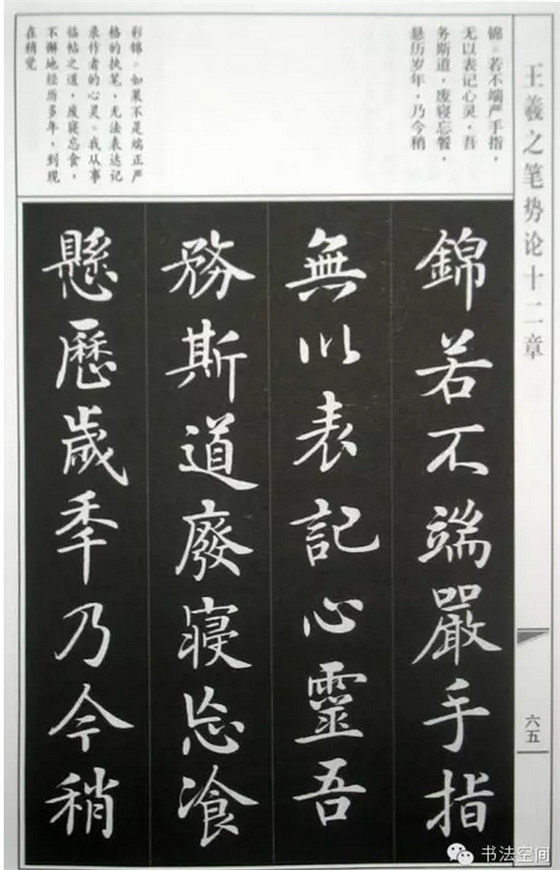 王羲之笔势论十二章
锦。若不端严手指，
无以表记心灵，吾
务斯道，废寝忘餐，
悬历岁年，乃今稍
彩锦。如果不是端正严
格的执笔，无法表达记
录作者的心灵。我从事
临帖之道，废寝忘食，
不懈地经历多年，到现
在稍觉
錦若不端嚴手指
無以表記心靈吾
務斯道廢寝忘飡
懸歷歲季乃今稍
六五
书法空间